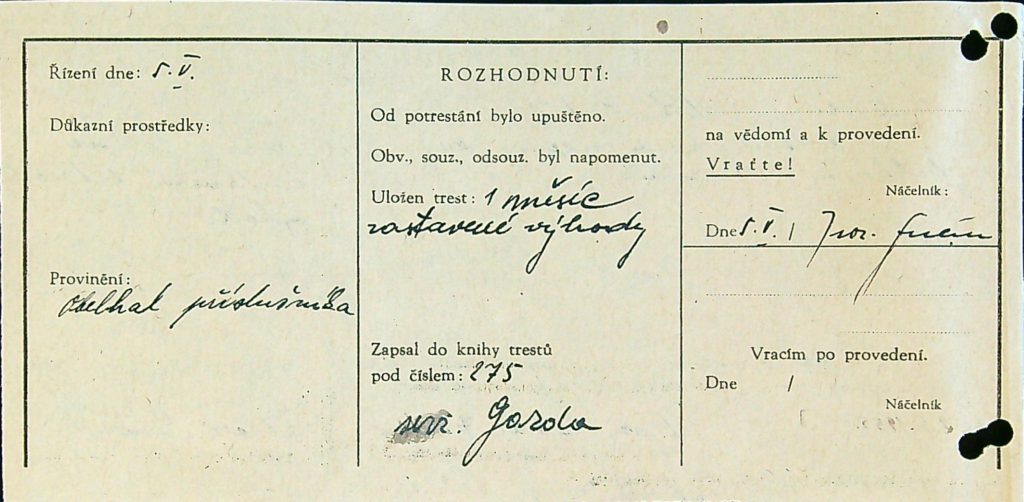 Řízení dne: 5. V.
Důkazní prostředky:
Provinění:
obelhal příslušníka
ROZHODNUTÍ:
Od potrestání bylo upuštěno.
Obv., souz., odsouz. byl napomenut.
Uložen trest: 1 měsíc
zastavené výhody
Zapsal do knihy trestů
pod číslem: 275
Gazda
na vědomí a k provedení.
Vraťte!
Náčelník:
Dne 5. V. /
Vracím po provedení.
Dne /
Náčelník